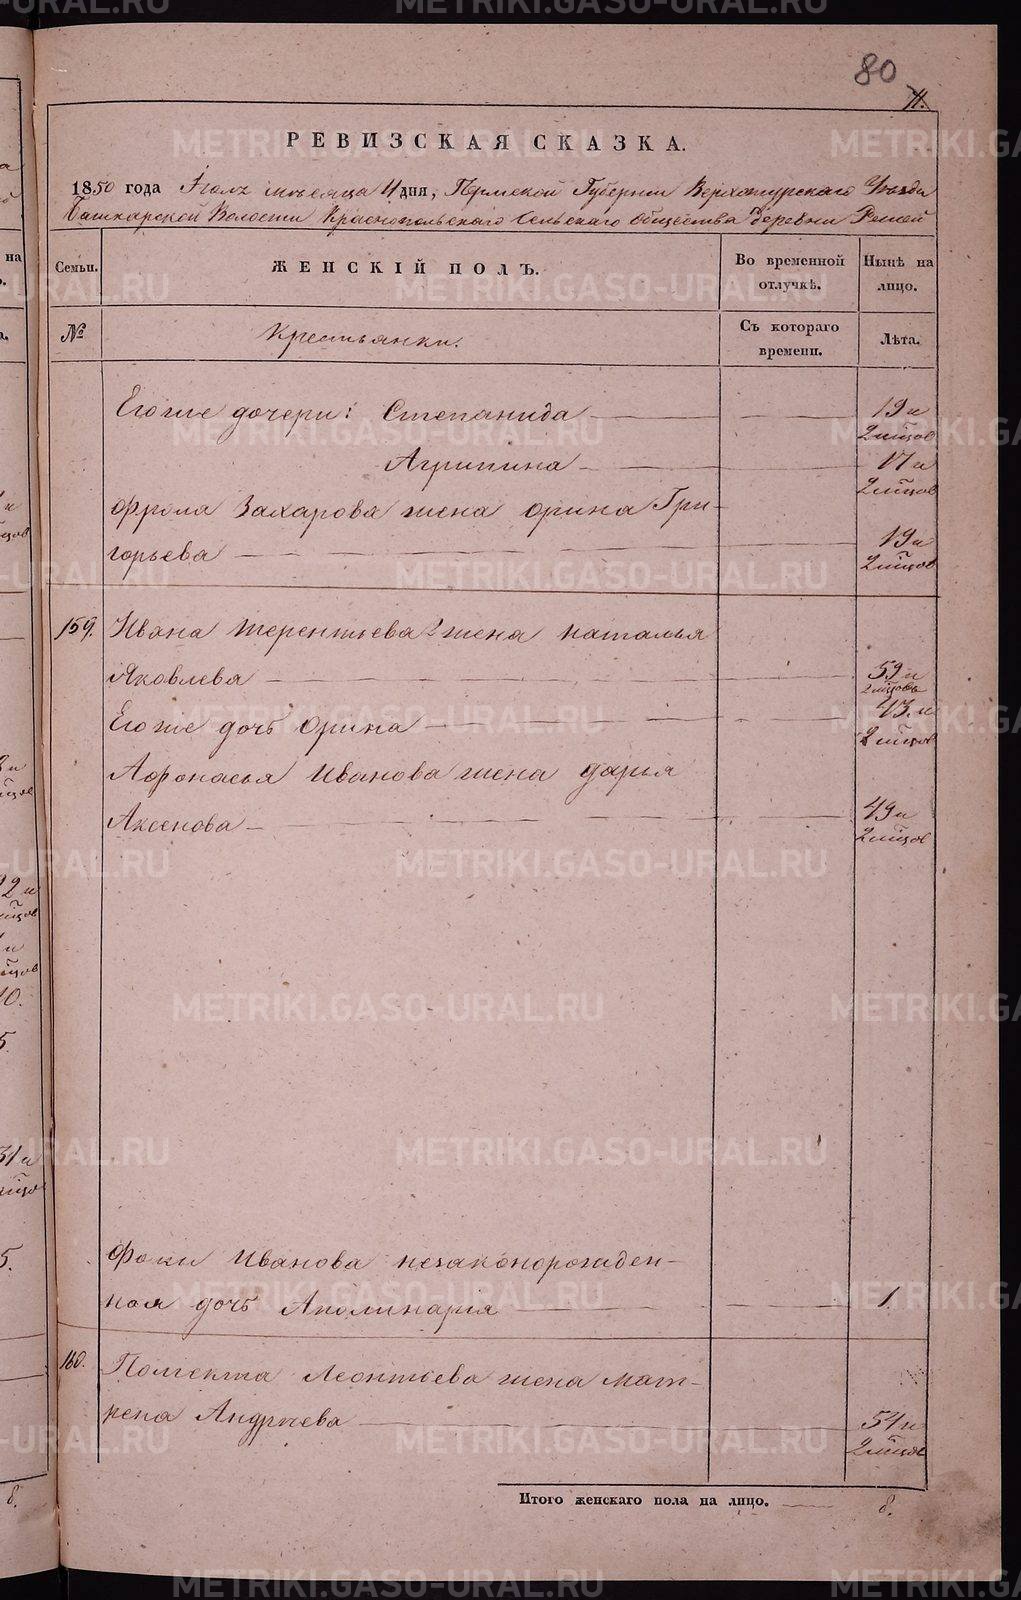 80
РЕВИЗСКАЯ СКАЗКА.
1850 года Іюля месяца 4 дня, Пермской Губернии Верхотурскаго Уезда
Башкарской Волости Краснопольскаго Сельскаго Общества деревни
Семьи. ЖЕНСКІЙ ПОЛЪ. Во временной отлучкѣ. Нынѣ на лицо.
№ Крестьянки. Съ котораго времени. Лѣта.
Его же дочери: Степанида 19 и
2 мцов
Агрипина 17 и
2 мцов
Фрола Захарова жена Орина Гри-
горьева 19 и
2 мцов
159. Ивана Терентьева 2 жена Наталья
Яковлева 59 и
2 мцовъ
Его же дочь Орина 43 и
2 мцов
Афонасья Иванова жена Дарья
Аксенова 49 и
2 мцов
Фоки Иванова незаконорожден-
ная дочь Аполинарія 1.
160. Полиекта Леонтьева жена Мат-
рена Андреева 54 и
2 мцов
Итого женскаго пола на лицо. 8.
METRIKI.GASO-URAL.RU